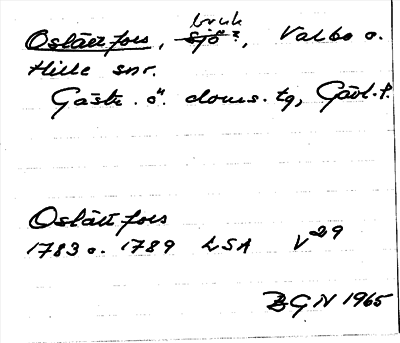 Oslättfors, bruk sjö?, Valbo o.
Hille snr.
Gästr. ö. doms. tg, Gävl. l.
Oslättfors
1783 o. 1789 LSA V29
BGN 1965